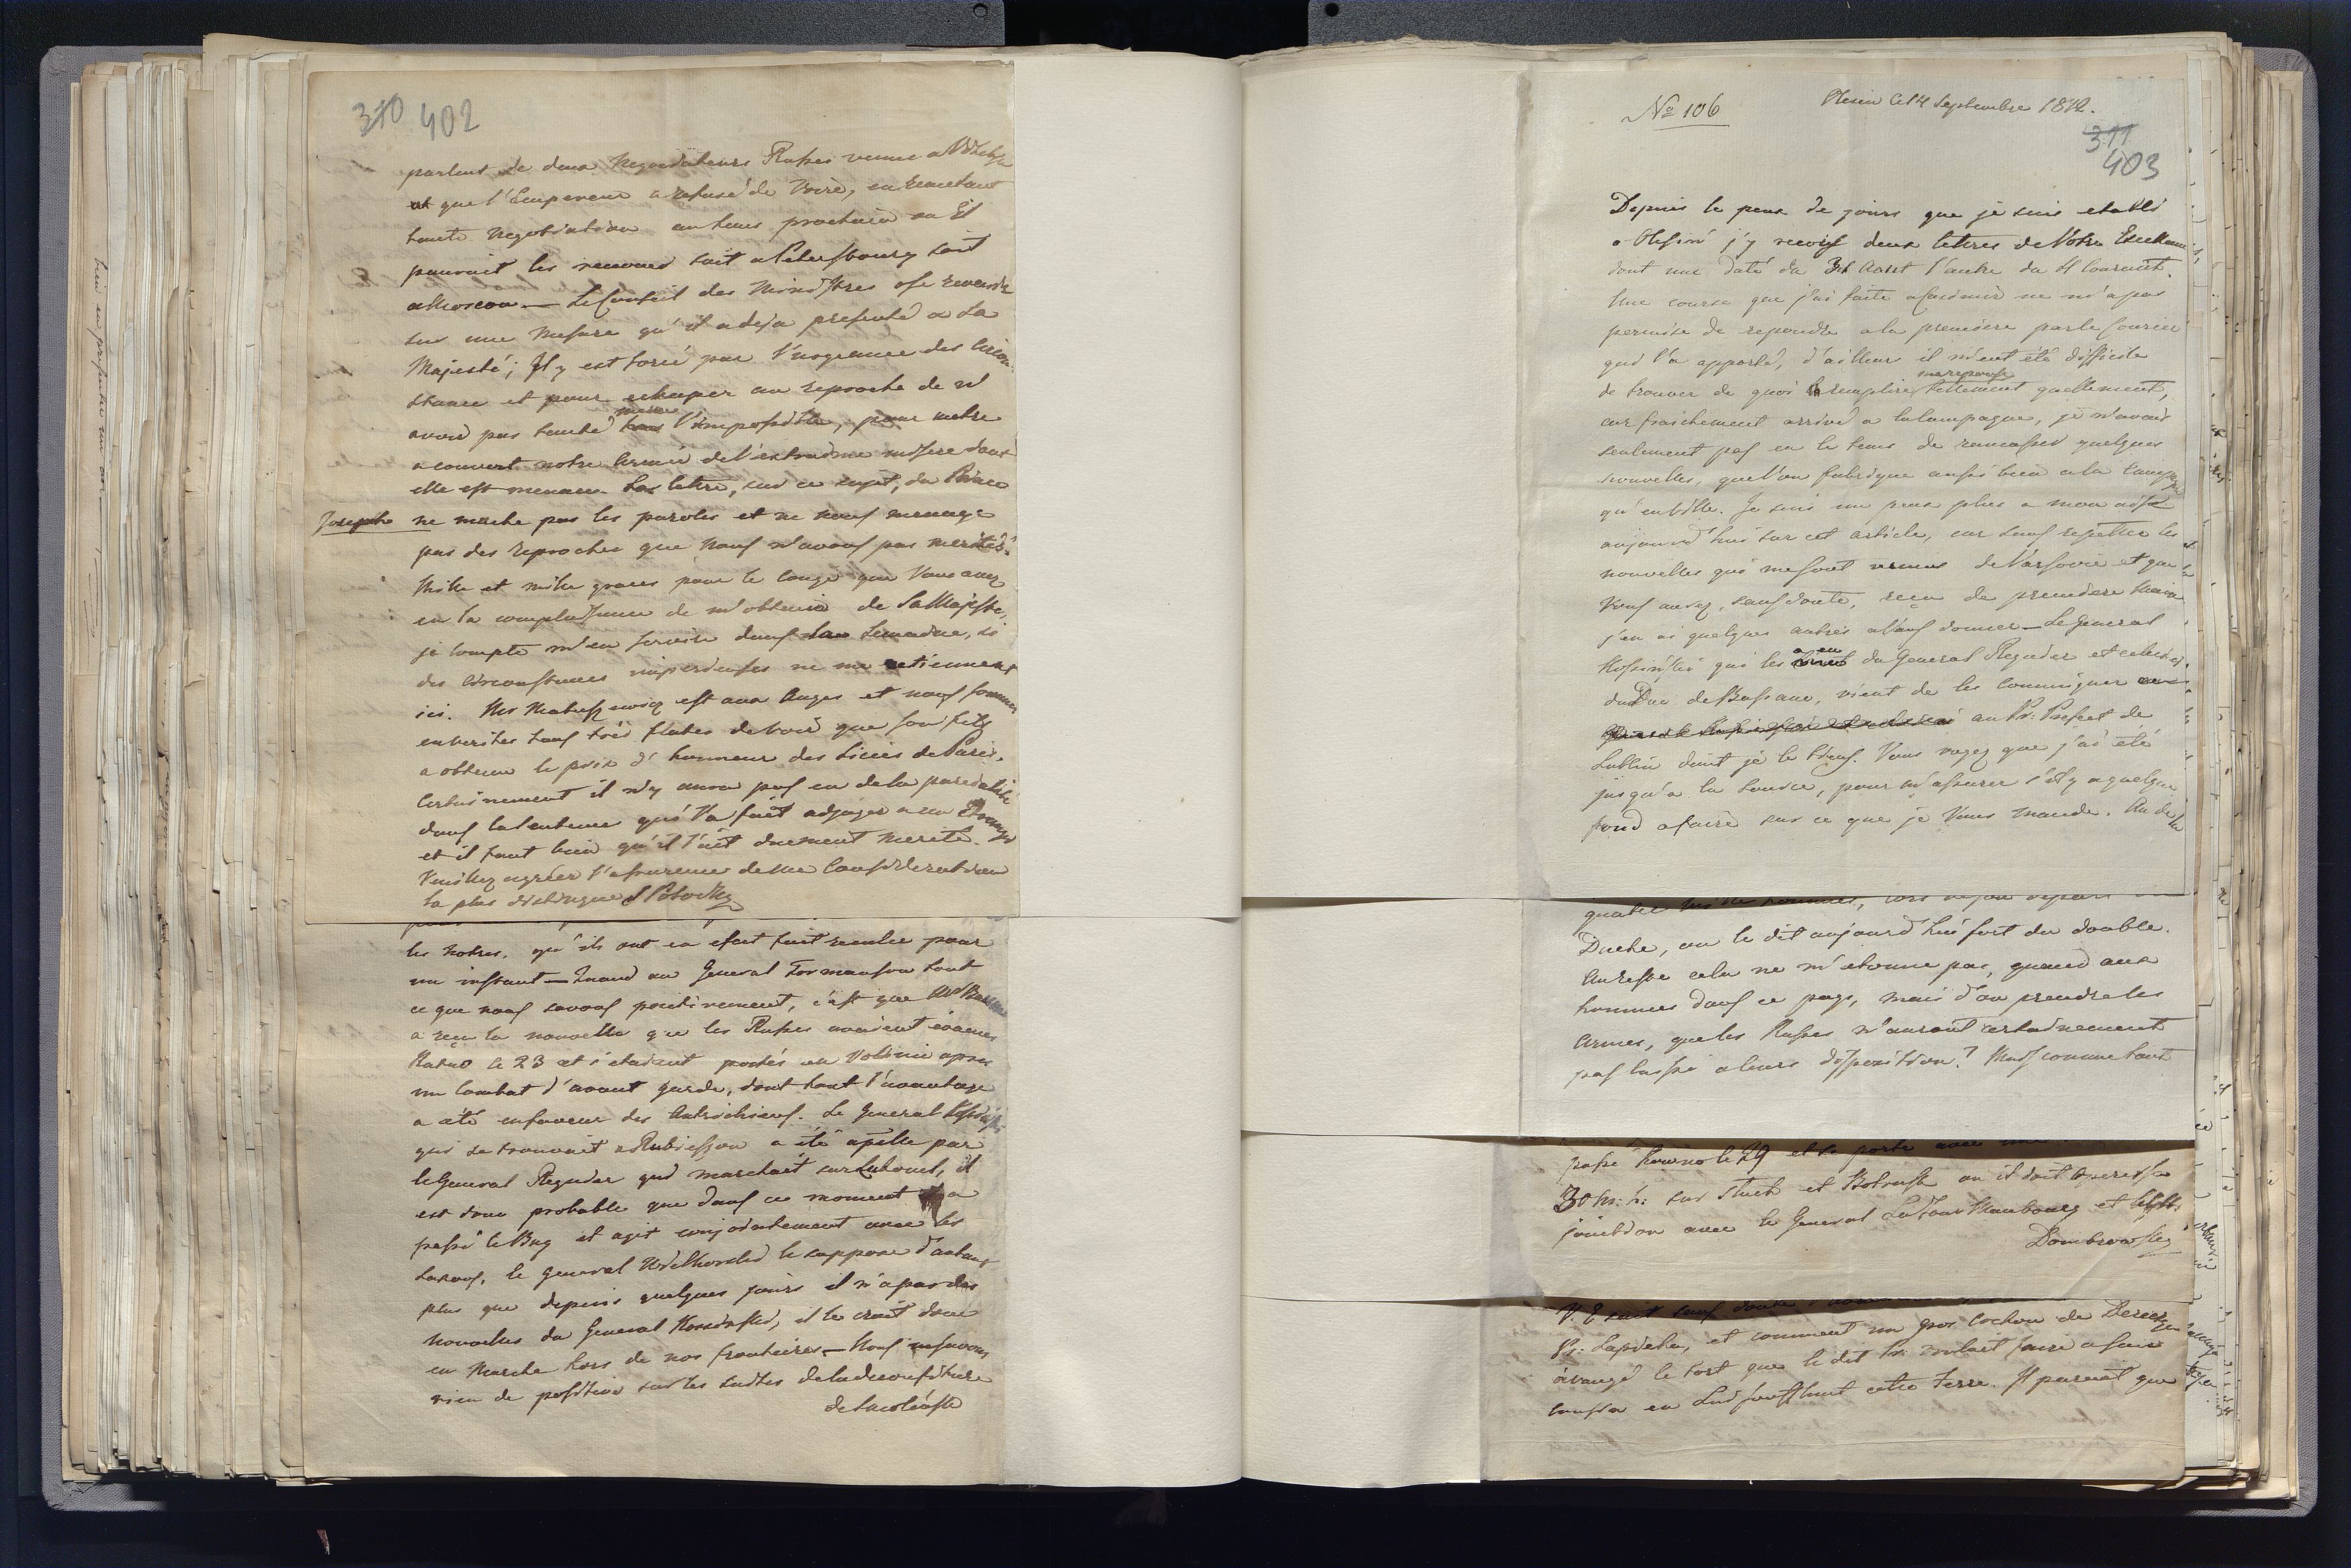 310 402
parlent de deux Negociateurs Russes venue a Witebsk
et que l'Empereur a refusé de Voire, en remetant
toute Negotiation au tems prochain ou Il
pouroit les renouer soit a Petersbourg soit
a Moscou — Le Conseil des Ministres ose revenir
sur une Mesure qu'il a deja presenté a Sa
Majesté; Il y est forcé par l'urgence des Circon-
stance et pour echaper au reproche de n'
avoir pas tenté meme l'impossible, pour metre
a couvert notre Armée de l'extreme misere dont
elle est menacée. La letre, sur ce sujet, du Prince
Joseph ne mache pas les paroles et ne nous menage
pas des reproches que nous n'avons pas merités.
Mille et mille graces pour le congé que Vous avez
eu la complaisance de m'obtenir de Sa Majesté,
je compte m'en servire dans la Semaine, si
des circonstances imperieuses ne me retiennent
ici. Mr Matuszewicz est aux Anges et nous sommes
en verités tous très flatés de voir que son fils
a obtenu le prix d'honneur des Licées de Paris.
Certainement il n'y aura pas eu de la parcialité
dans la sentence qui l'a fait adjuger a un Etranger
et il faut bien qu'il l'ait duement merité.
Veuillez agréer l'assurence de ma Consideration
la plus distinguée S Potocky
les notres, qu'ils ont en efet fait reculer pour
un instant — Quand au General Tormansow tout
ce que nous savons positivement, c'est que Mr
a reçu la nouvelle que les Russes avoient évacué
Ratno le 23 et s'etoient portés en Volinie apres
un Combat d'avant garde, dont tout l'avantage
a été en faveur des Autrichiens. Le General Kosinski
qui se trouvoit a Rubieszow a été apellé par
le General Regnier qui marchoit sur Luboml, il
est donc probable que dans ce moment il a
passé le Bug et agit conjointement avec les
Saxons, le General Wielhorski le suppose d'autant
plus que depuis quelques jours il n'a pas des
nouvelles du General Kossinski, il le croit donc
en Marche hors de nos frontieres — Nous ne savons
rien de positive sur les suites de la deconfiture
de Smolensk
No 106
Olesin Ce 14 Septembre 1812.
311
403
Depuis le peux de jours que je suis etabli
a Olesin j'y reçois deux letres de Votre Excellence,
dont une daté du 31 Aout l'autre du 4 Courant.
Une course que j'ai faite a ne m'a pas
permise de repondre a la premiere par le Courier
qui l'a apporté, d'ailleurs il m'eut été difficile
de trouver de quoi remplire ma reponse tellement quellement,
car fraichement arrivé a la Campagne, je n'avais
seulement pas eu le tems de ramasser quelques
nouvelles, que l'on fabrique aussi bien a la Campagne
qu'en Ville. Je suis un peux plus a mon aise
aujourd'hui sur cet article, car sans repetter les
nouvelles qui me sont venus de Varsovie et que
Vous aurez, sans doute, reçu de premiere Main
j'en ai quelques autres a Vous donner — Le General
Kossinski qui les a eu du General Regnier et celui ci
du Duc de Bassano, vient de les communiquer
au Pr: Prefect de
Lublin dont je le tiens. Vous voyez que j'ai été
jusqu'a la source, pour m'assurer s'il y a quelque
fond a faire sur ce que je Vous mande. Au de la
quatre mille hommes,
Duché, on le dit aujourd'hui fort du double.
Au reste cela ne m'etonne pas, quand aux
hommes dans ce pays, mais d'ou prendre les
Armes, que les Russes n'auront certainement
pas laissé a leurs disposition? Mais comme tout
passé Kowno le 29 et se porte avec
30 m: h: sur Sluck et Bobruisk ou il doit operer sa
jonction avec le General La Tour Maubourg et
Dombrowsky
V: E sait sans doute
Pr: Sapieha, et comment un gros Cochon de
a vangé le tort que le dit Pr: vouloit faire a son
en cette terre. Il paroit que